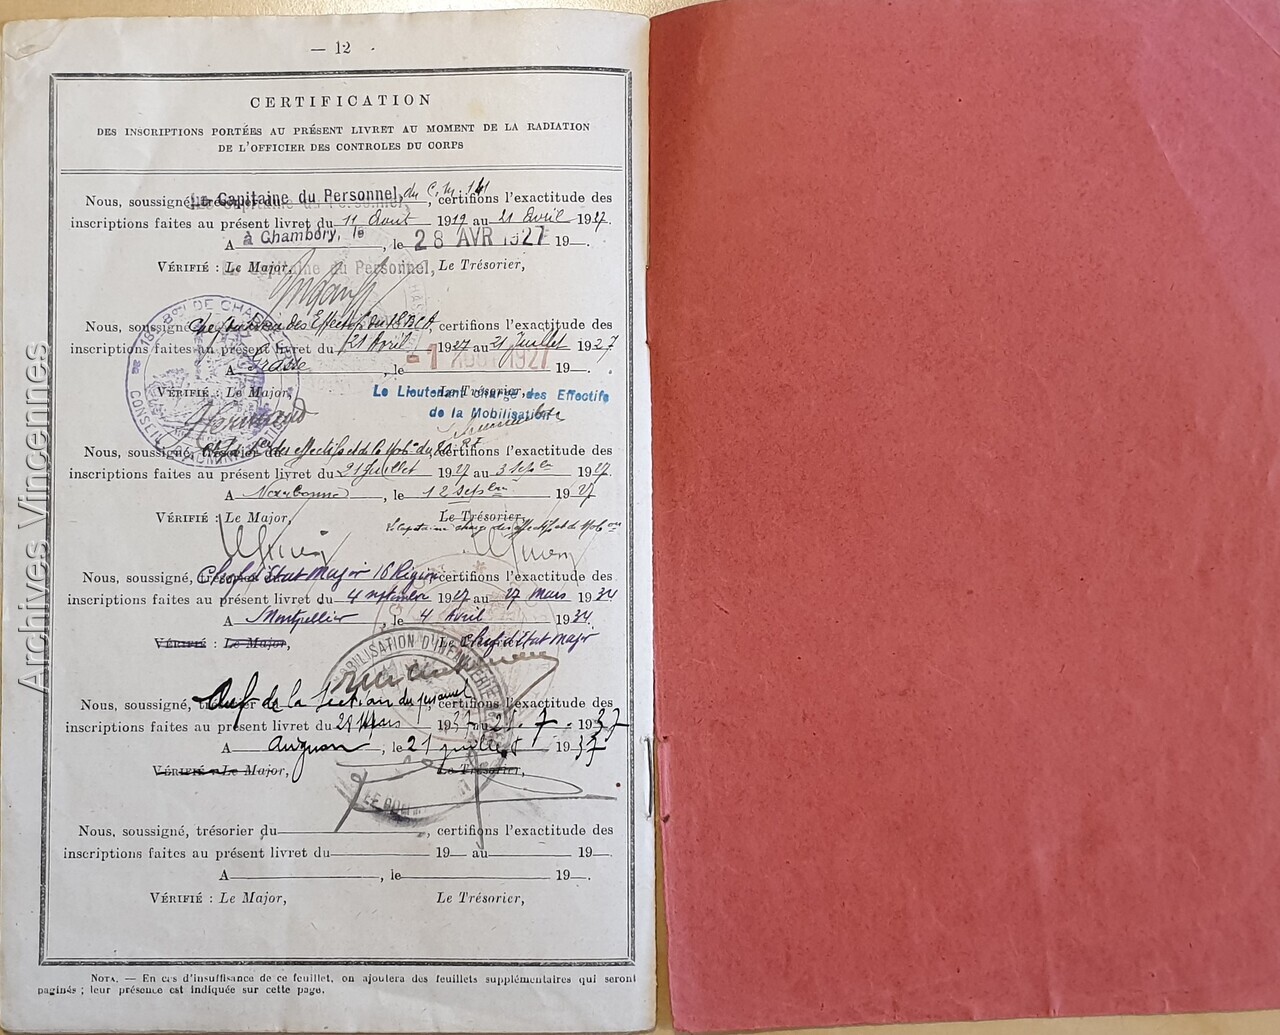 — 12
CERTIFICATION
DES INSCRIPTIONS PORTÉES AU PRÉSENT LIVRET AU MOMENT DE LA RADIATION
DE L'OFFICIER DES CONTROLES DU CORPS
Nous, soussigné, Le Capitaine du Personnel, du C.M. 141, certifions l'exactitude des
inscriptions faites au présent livret du 11 Août 1919 au 21 Avril 1927.
A à Chambéry, le, le 28 AVR 1927 19—.
VÉRIFIÉ : Le Major, Le Capitaine du Personnel, Le Trésorier,
Nous, soussigné des Effectifs du 18 BCA, certifions l'exactitude des
inscriptions faites au présent livret du 21 Avril 1927 au 21 Juillet 1927
A Grasse, le -1 AOUT 1927 19—.
VÉRIFIÉ : Le Major, Le Trésorier,
Le Lieutenant chargé des Effectifs
de la Mobilisation
Nous, soussigné, des effectifs et de la Mob. du, certifions l'exactitude des
inscriptions faites au présent livret du 21 Juillet 1927 au 3 sepbre 1927
A Narbonne, le 12 sepbre 1927
VÉRIFIÉ : Le Major, Le Trésorier,
Le Capitaine chargé des effectifs et de Mob on
Nous, soussigné, Chef d'Etat Major 16 Région certifions l'exactitude des
inscriptions faites au présent livret du 4 septembre 1927 au 27 mars 1934
A Montpellier, le 4 Avril 1934.
VÉRIFIÉ : Le Major, Le Chef d'Etat Major
Nous, soussigné, Chef de la Section du personnel, certifions l'exactitude des
inscriptions faites au présent livret du 29 Mars 1937 au 21. 7. 1937
A Avignon, le 21 juillet 1937
VÉRIFIÉ : Le Major, Le Trésorier,
Nous, soussigné, trésorier du, certifions l'exactitude des
inscriptions faites au présent livret du 19— au 19—.
A, le 19—.
VÉRIFIÉ : Le Major, Le Trésorier,
NOTA. — En cas d'insuffisance de ce feuillet, on ajoutera des feuillets supplémentaires qui seront
paginés ; leur présence est indiquée sur cette page.
Archives Vincennes